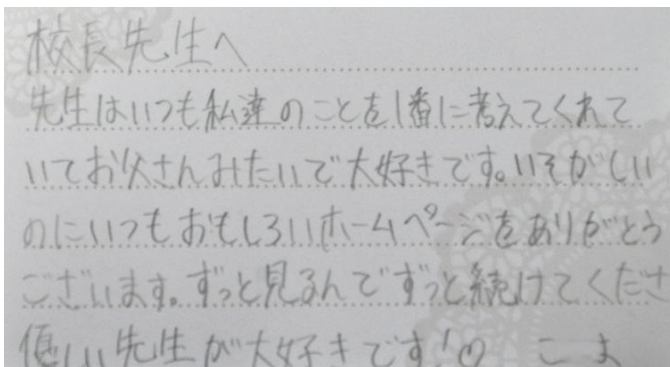 校長先生へ
先生はいつも私達のことを1番に考えてくれて
いてお父さんみたいで大好きです。いそがしい
のにいつもおもしろいホームページをありがとう
ございます。ずっと見るんでずっと続けてくださ
優しい先生が大好きです!♡ こま